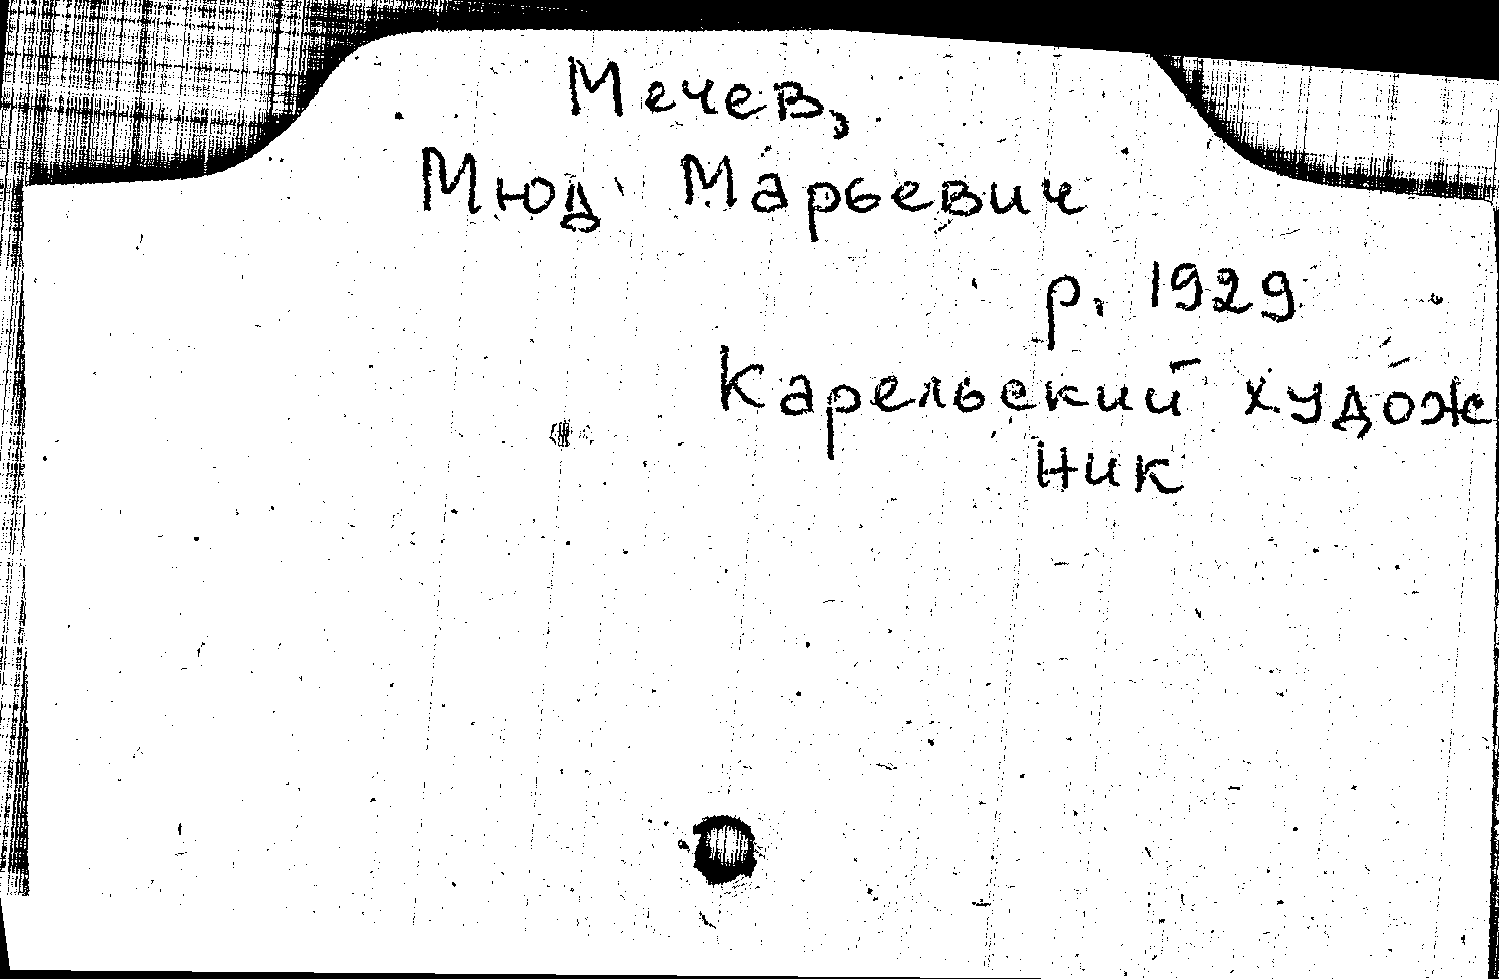 Мечев,
Мюд Марьевич
р. 1929
Карельский худож
ник